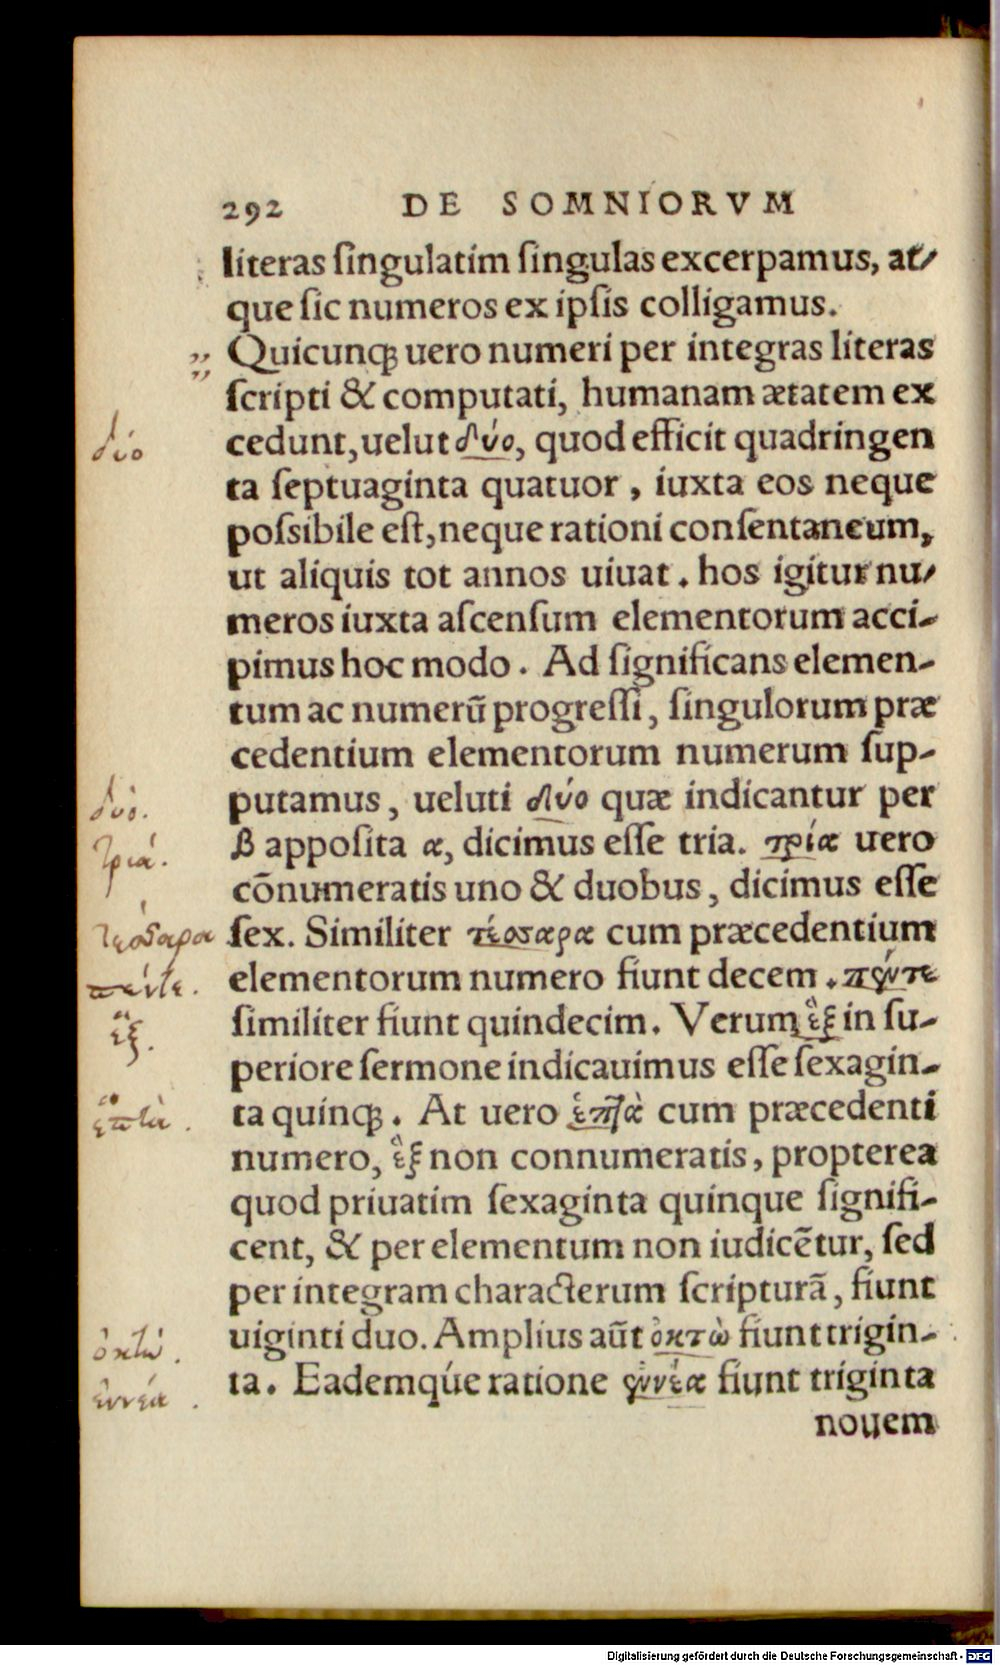 292 DE SOMNIORVM
literas ſingulatim ſingulas excerpamus, at⸗
que ſic numeros ex ipſis colligamus.
„ Quicunq; uero numeri per integras literas
ſcripti & computati, humanam ætatem ex
δύο cedunt, uelut δύο, quod efficit quadringen
ta ſeptuaginta quatuor, iuxta eos neque
poſsibile eſt, neque rationi conſentaneum,
ut aliquis tot annos uiuat. hos igitur nu⸗
meros iuxta aſcenſum elementorum acci-
pimus hoc modo. Ad ſignificans elemen-
tum ac numerũ progreſſi, ſingulorum præ
cedentium elementorum numerum ſup-
δύο. putamus, ueluti δύο quæ indicantur per
τριά. β appoſita α, dicimus eſſe tria. τρία uero
cõnumeratis uno & duobus, dicimus eſſe
τέσσαρα ſex. Similiter τέσσαρα cum præcedentium
πέντε. elementorum numero fiunt decem. πέντε
ἓξ. ſimiliter fiunt quindecim. Verum ἓξ in ſu-
periore ſermone indicauimus eſſe ſexagin-
ἑπτὰ. ta quinq;. At uero ἑπτὰ cum præcedenti
numero, ἓξ non connumeratis, propterea
quod priuatim ſexaginta quinque ſignifi-
cent, & per elementum non iudicẽtur, ſed
per integram characterum ſcripturã, fiunt
ὀκτώ. uiginti duo. Amplius aũt ὀκτὼ fiunt trigin-
ἐννέα. ta. Eademq́ue ratione ἐννέα fiunt triginta
nouem
Digitalisierung gefördert durch die Deutsche Forschungsgemeinschaft - DFG